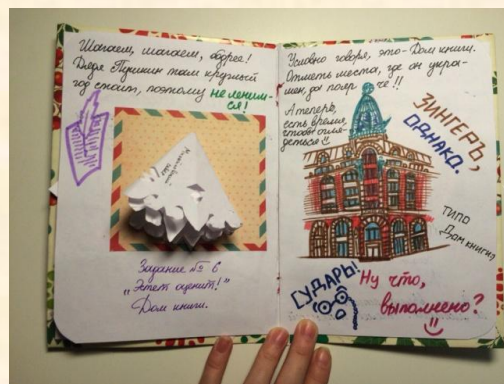 Шагаем, шагаем, бодрее!
Дядя Пушкин там круглый
год стоит, поэтому не леним-
ся!
Задание № 6
"Эстет оценит!"
Дом книги.
Условно говоря, это - Дом книги.
Отметь места, где он укра-
шен, да поярче!!
А теперь,
есть время,
стоит огля-
деться
ЗИНГЕРЪ,
ОДНАКО.
ТИПО
Дом книги
СУДАРЬ!
Ну что,
выполнено?